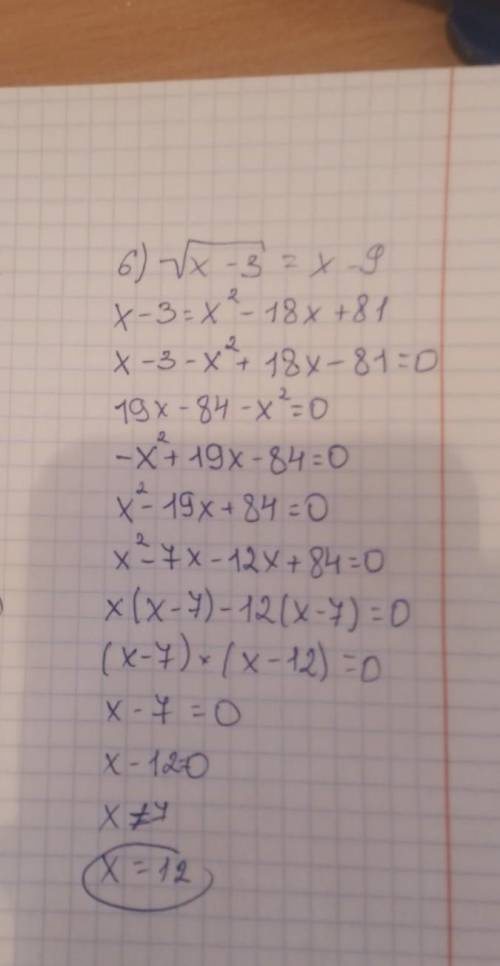 б) √(x - 3) = x - 9
x - 3 = x² - 18x + 81
x - 3 - x² + 18x - 81 = 0
19x - 84 - x² = 0
-x² + 19x - 84 = 0
x² - 19x + 84 = 0
x² - 7x - 12x + 84 = 0
x(x - 7) - 12(x - 7) = 0
(x - 7) × (x - 12) = 0
x - 7 = 0
x - 12=0
x ≠ 7
x = 12